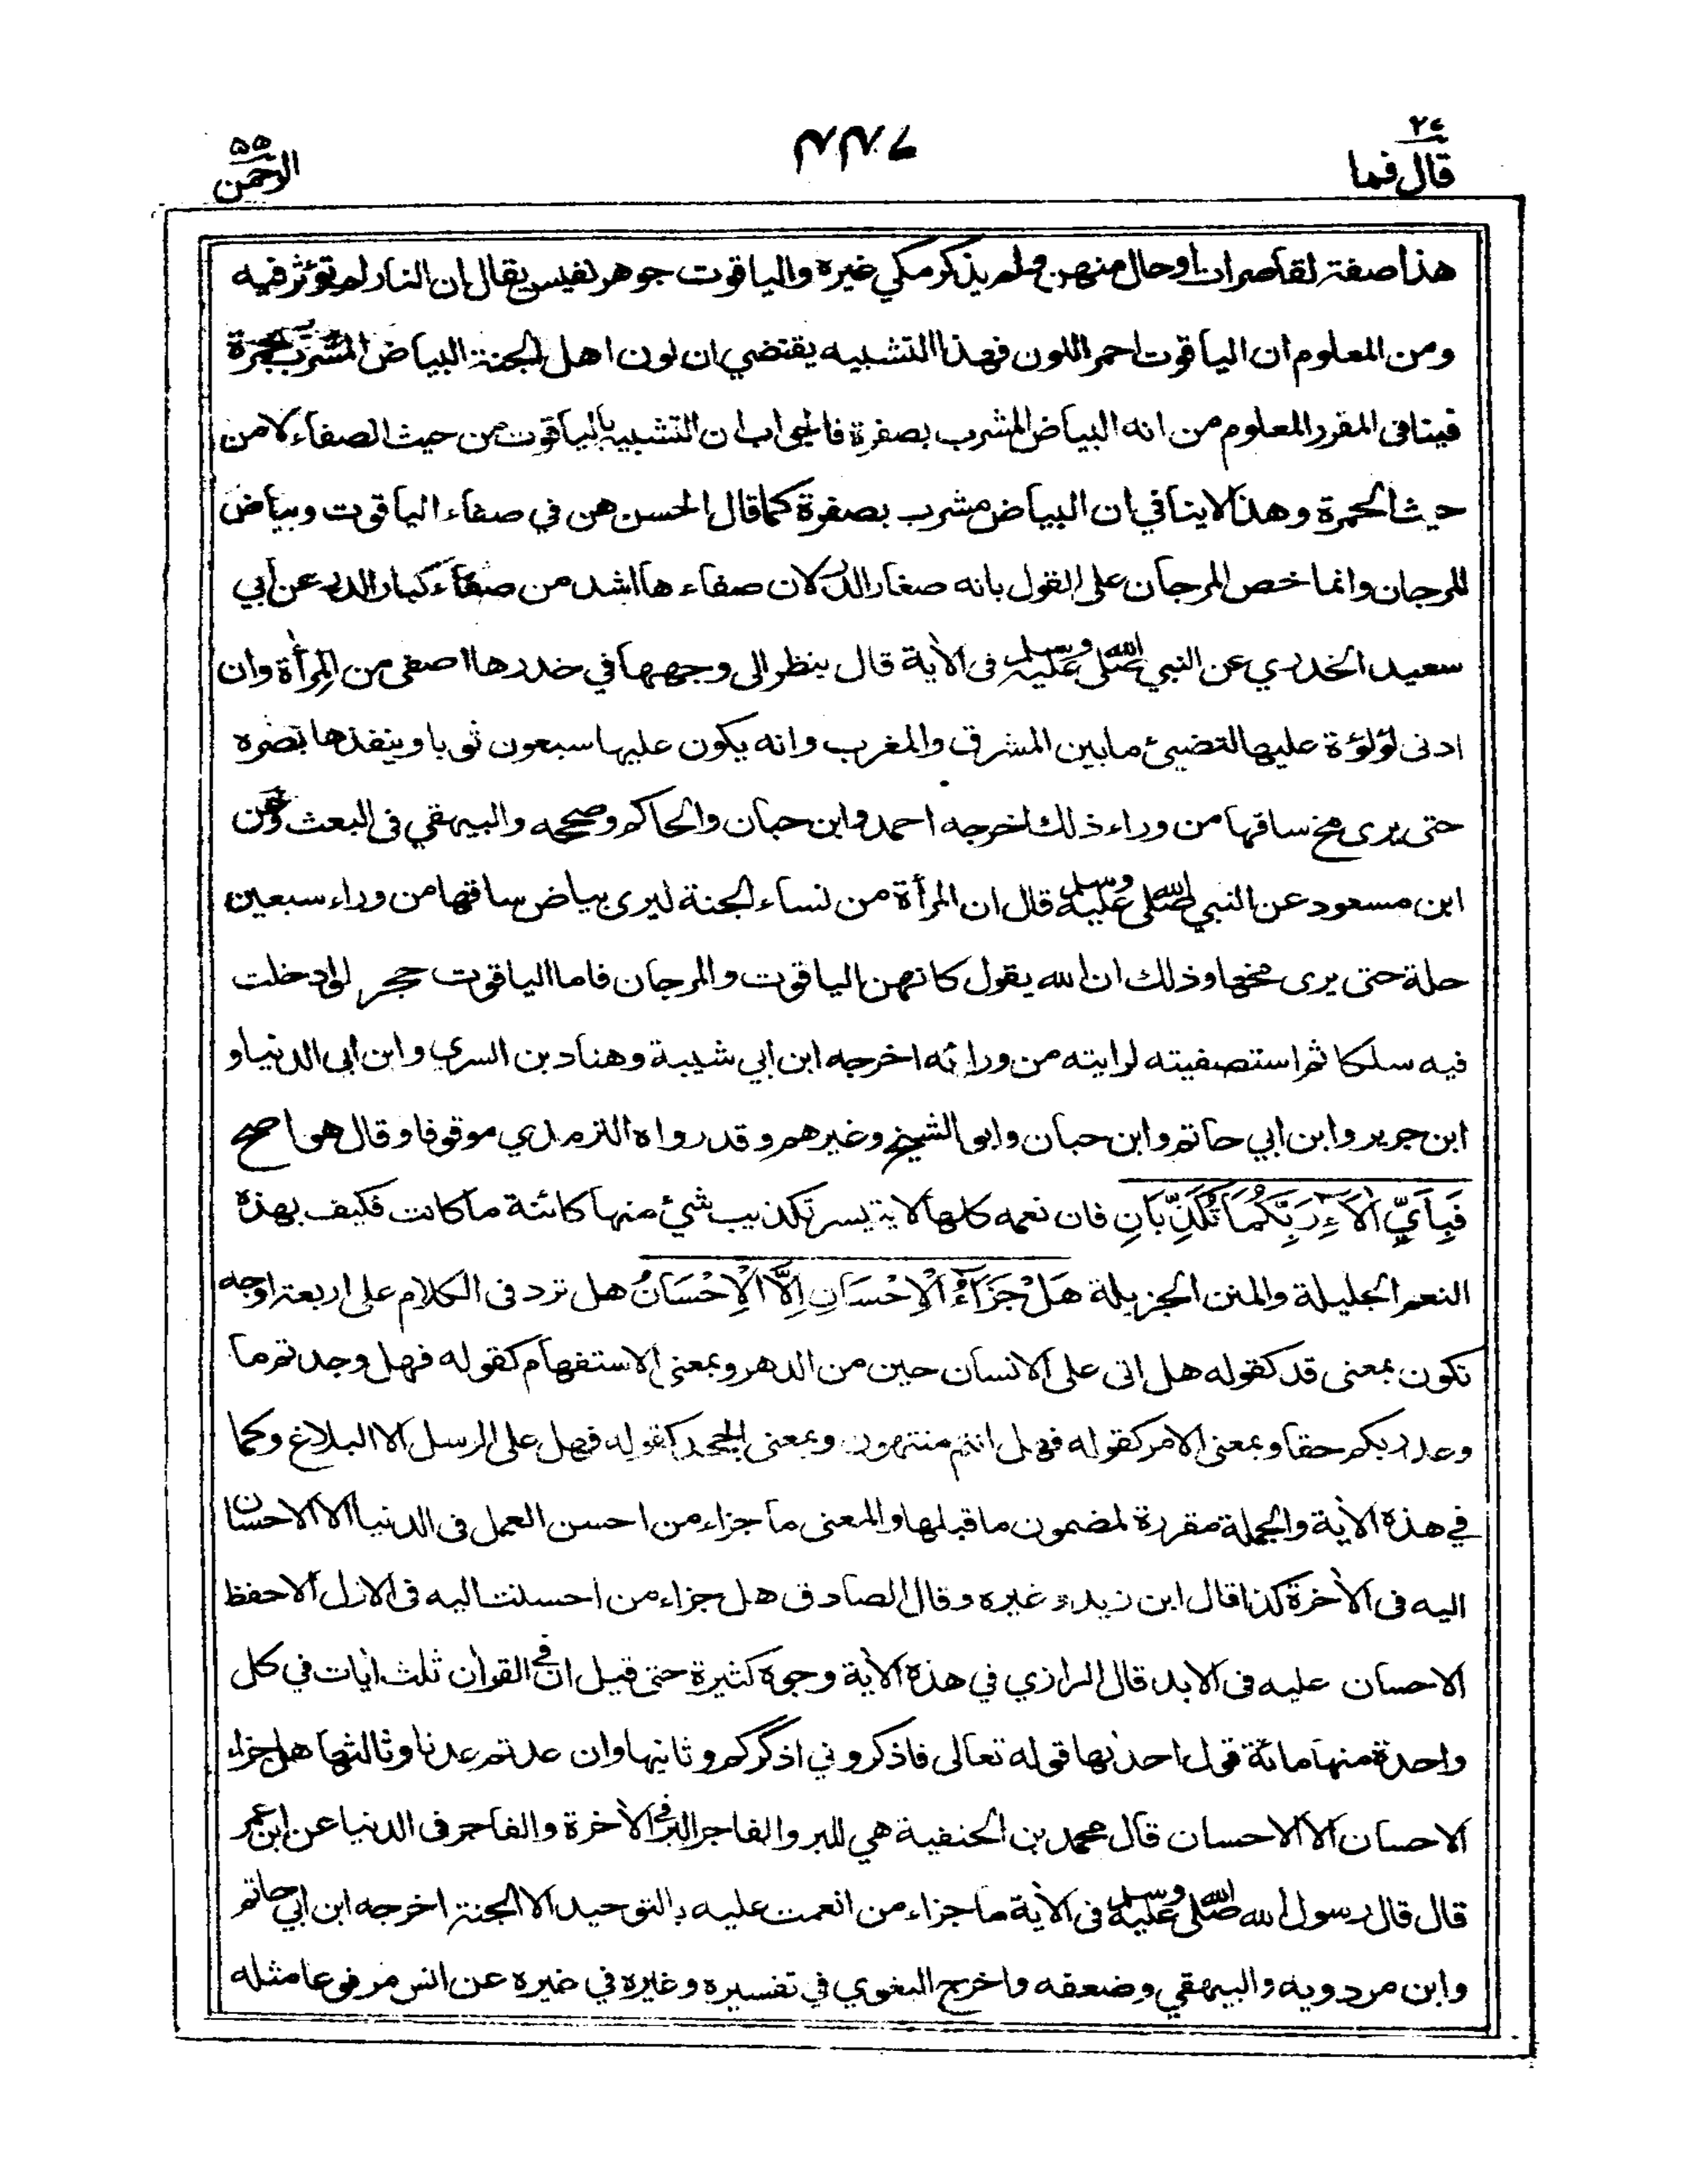 ٢٧
قال فما
٥٥
الرحمن
هذا صفة لقاصرات او حال منهن ولم يذكر مكي غيره والياقوت جوهر نفيس يقال ان النار لم تؤثر فيه
ومن المعلوم ان الياقوت احمر اللون فهذا التشبيه يقتضي ان لون اهل الجنة البياض المشرب بحمرة
فينافى المقرر المعلوم من انه البياض المشرب بصفرة فالجواب ان التشبيه بالياقوت من حيث الصفاء لا من
حيث الحمرة وهذا لا ينافي ان البياض مشرب بصفرة كما قال الحسن هن في صفاء الياقوت وبياض
المرجان وانما خص المرجان على القول بانه صغار الدر لان صفاءها اشد من صفاء كبار الدر عن أبي
سعيد الخدري عن النبي صلى الله عليه وسلم فى الأية قال ينظر الى وجهها في خدرها اصفى من المرأة وان
ادنى لؤلؤة عليها لتضيئ ما بين المشرق والمغرب وانه يكون عليها سبعون ثوبا وينفذها بصره
حتى يرى مخ ساقها من وراء ذلك اخرجه احمد وابن حبان والحاكم وصححه والبيهقي فى البعث وعن
ابن مسعود عن النبي صلى الله عليه وسلم قال ان المرأة من نساء الجنة ليرى بياض ساقها من وراء سبعين
حلة حتى يرى مخها وذلك ان الله يقول كانهن الياقوت والمرجان فاما الياقوت حجر لو ادخلت
فيه سلكا ثم استصفيته لرايته من ورائه اخرجه ابن ابي شيبة وهناد بن السري وابن ابى الدنيا و
ابن جرير وابن ابي حاتم وابن حبان وابو الشيخ وغيرهم وقد رواه الترمذي موقوفا وقال هو اصح
فَبِأَيِّ اٰلَآءِ رَبِّكُمَا تُكَذِّبَانِ فان نعمه كلها لا يتيسر تكذيب شيئ منها كائنة ما كانت فكيف بهذه
النعم الجليلة والمنن الجزيلة هَلْ جَزَآءُ الْاِحْسَانِ اِلَّا الْاِحْسَانُ هل ترد فى الكلام على اربعة اوجه
تكون بمعنى قد كقوله هل اتى على الانسان حين من الدهر وبمعنى الاستفهام كقوله فهل وجدتم ما
وعد ربكم حقا وبمعنى الامر كقوله فهل انتم منتهون وبمعنى الجحد كقوله فهل على الرسل الا البلاغ وكما
في هذه الأية والجملة مقررة لمضمون ما قبلها والمعنى ما جزاء من احسن العمل فى الدنيا الا الاحسان
اليه فى الأخرة كذا قال ابن زيد وغيره وقال الصادق هل جزاء من احسنت اليه فى الازل الا حفظ
الاحسان عليه فى الابد قال الرازي في هذه الأية وجوه كثيرة حتى قيل ان في القران ثلث ايات في كل
واحدة منها مائة قول احدٰها قوله تعالى فاذكروني اذكركم وثانيها وان عدتم عدنا وثالثها هل جزاء
الاحسان الا الاحسان قال محمد بن الحنفية هي للبر والفاجر البر في الأخرة والفاجر فى الدنيا عن ابن عمر
قال قال رسول الله صلى الله عليه وسلم فى الأية ما جزاء من انعمت عليه بالتوحيد الا الجنة اخرجه ابن ابي حاتم
وابن مردويه والبيهقي وضعفه واخرج البغوي في تفسيره وغيره في غيره عن انس مرفوعا مثله